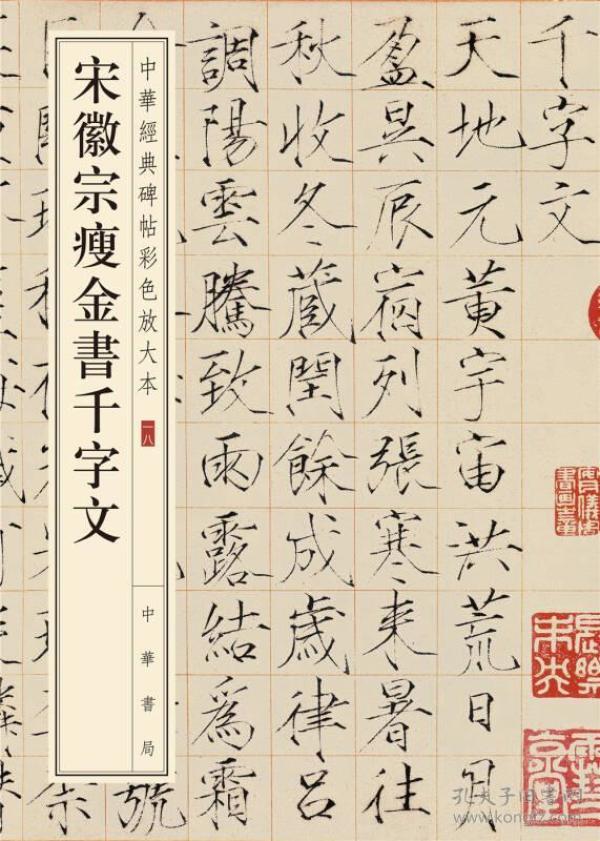 千字文
天地元黄宇宙洪荒日月
盈昃辰宿列張寒来暑往
秋收冬蔵閏餘成歳律吕
調陽雲騰致雨露結爲霜
中華經典碑帖彩色放大本
一八
宋徽宗瘦金書千字文
中華書局
號
長樂未央
孔夫子旧书网